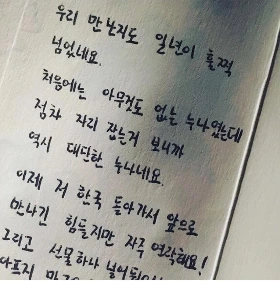 우리 만난지도 일년이 훌쩍
넘었네요.
처음에는 아무것도 없는 누나였는데
점차 자리 잡는거 보니까
역시 대단한 누나네요.
이제 저 한국 돌아가서 앞으로
만나긴 힘들지만 자주 연락해요!
그리고 선물하나 넣어
아프지